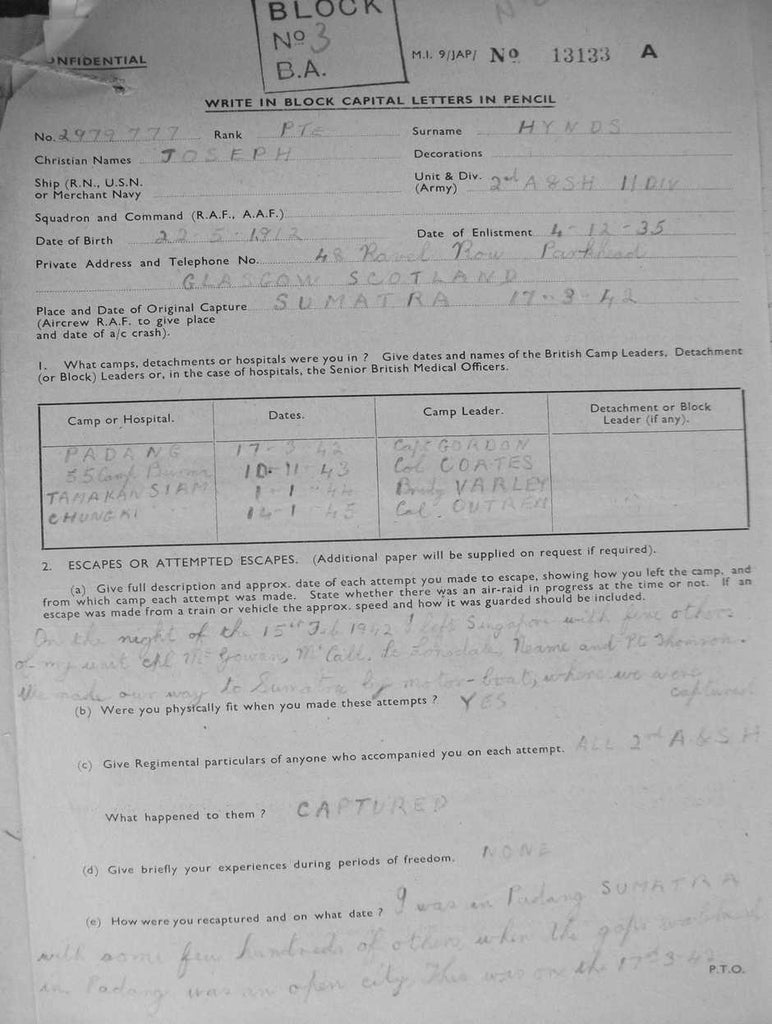 BLOCK
No 3
B.A.
ONFIDENTIAL
M.I. 9/JAP/ No 13133 A
WRITE IN BLOCK CAPITAL LETTERS IN PENCIL
No. 2979777 Rank PTE Surname HYNDS
Christian Names JOSEPH Decorations
Ship (R.N., U.S.N. or Merchant Navy
Unit & Div. (Army) 2nd A&SH 11 DIV
Squadron and Command (R.A.F., A.A.F.)
Date of Birth 22-5-1912 Date of Enlistment 4-12-35
Private Address and Telephone No. 48 Row Parkhead
GLASGOW SCOTLAND
Place and Date of Original Capture SUMATRA 17-3-42
(Aircrew R.A.F. to give place
and date of a/c crash).
1. What camps, detachments or hospitals were you in ? Give dates and names of the British Camp Leaders, Detachment
(or Block) Leaders or, in the case of hospitals, the Senior British Medical Officers.
Camp or Hospital. Dates. Camp Leader. Detachment or Block Leader (if any).
PADANG 17-3-42 Capt GORDON
55 Camp Burma 10-11-43 Col COATES
TAMAKAN SIAM 1-1-44 Brig VARLEY
CHUNGKI 14-1-45 Col. OUTREM
2. ESCAPES OR ATTEMPTED ESCAPES. (Additional paper will be supplied on request if required).
(a) Give full description and approx. date of each attempt you made to escape, showing how you left the camp, and
from which camp each attempt was made. State whether there was an air-raid in progress at the time or not. If an
escape was made from a train or vehicle the approx. speed and how it was guarded should be included.
On the night of the 15th Feb 1942 I left Singapore with five others
of my unit Cpl McGowan, McCall, Lonsdale, Neame and Pte Thomson.
We made our way to Sumatra by motor-boat, where we were
captured
(b) Were you physically fit when you made these attempts ? YES
(c) Give Regimental particulars of anyone who accompanied you on each attempt. ALL 2nd A&SH
What happened to them ? CAPTURED
(d) Give briefly your experiences during periods of freedom. NONE
(e) How were you recaptured and on what date ? I was in Padang SUMATRA
with some few hundreds of others when the japs
in Padang was an open city. This was on the 17-3-42
P.T.O.